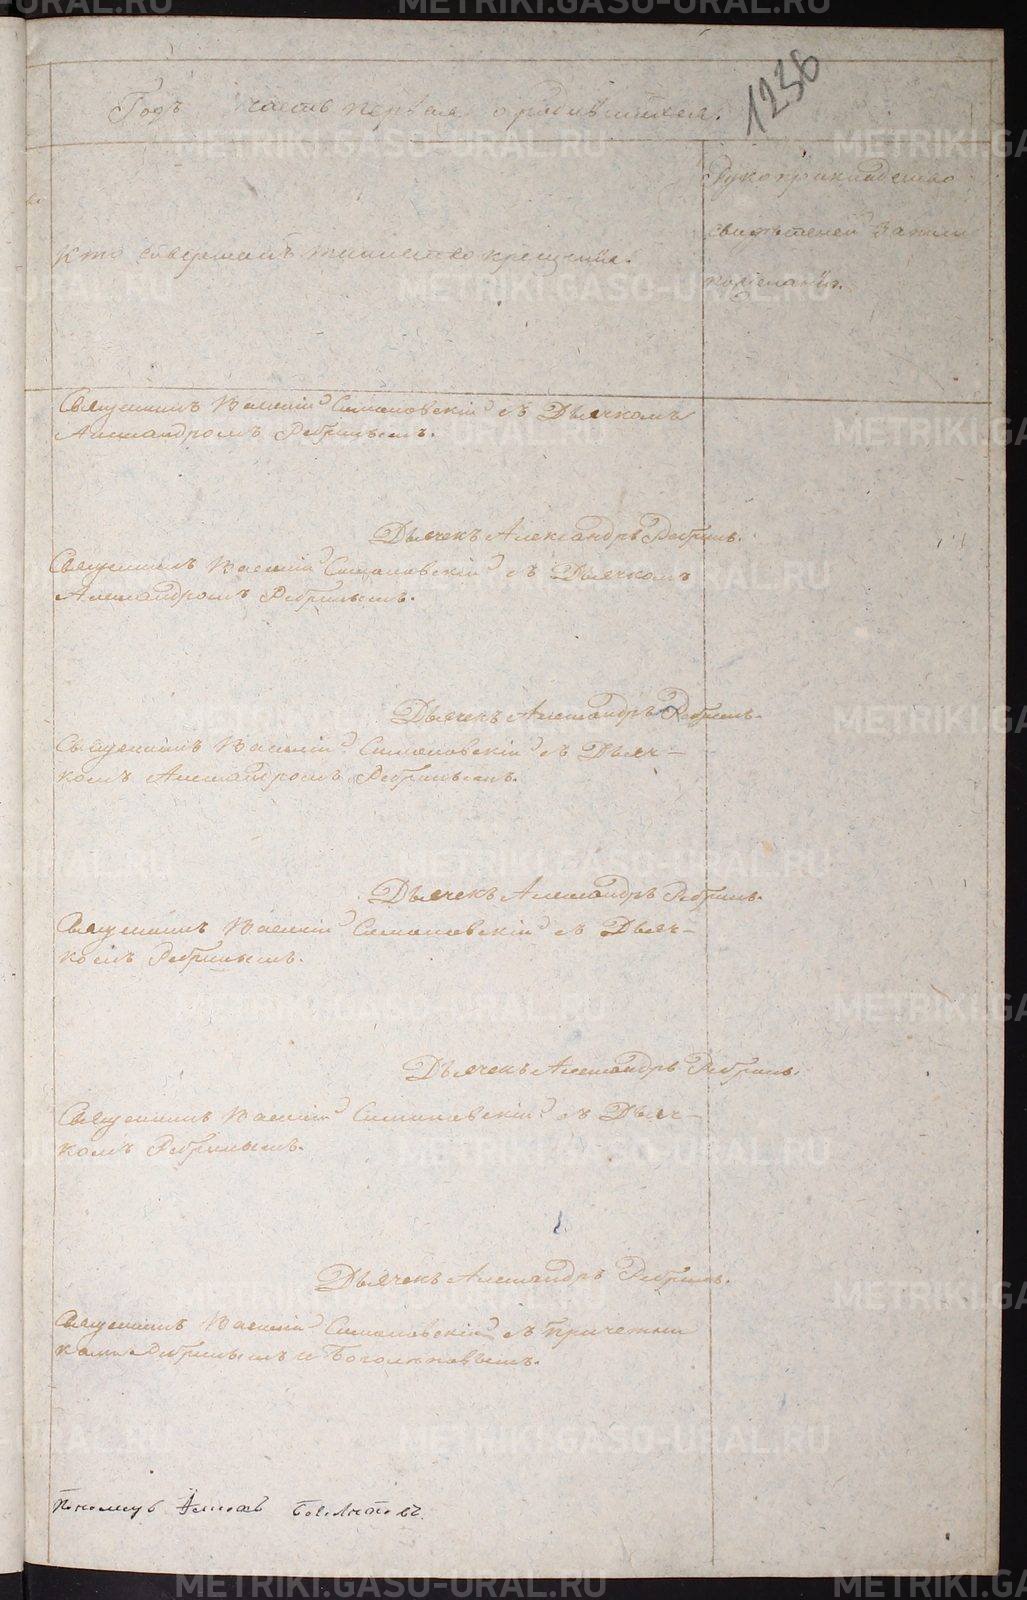 1236
Годъ часть первая, о родившихся.
Кто совершалъ таинство крещенія.
Рукоприкладство
свидѣтелей записи
по желанію.
Священникъ Василій Симановскій съ Дьячкомъ
Александромъ Ребринымъ.
Дьячекъ Александръ Ребринъ.
Священникъ Василій Симановскій съ Дьячкомъ
Александромъ Ребринымъ.
Дьячекъ Александръ Ребринъ.
Священникъ Василій Симановскій съ Дьяч-
комъ Александромъ Ребринымъ.
Дьячекъ Александръ Ребринъ.
Священникъ Василій Симановскій съ Дьяч-
комъ Ребринымъ.
Дьячекъ Александръ Ребринъ.
Священникъ Василій Симановскій съ Дьяч-
комъ Ребринымъ.
Дьячекъ Александръ Ребринъ.
Священникъ Василій Симановскій съ причетни
ками Ребринымъ и
METRIKI.GASO-URAL.RU